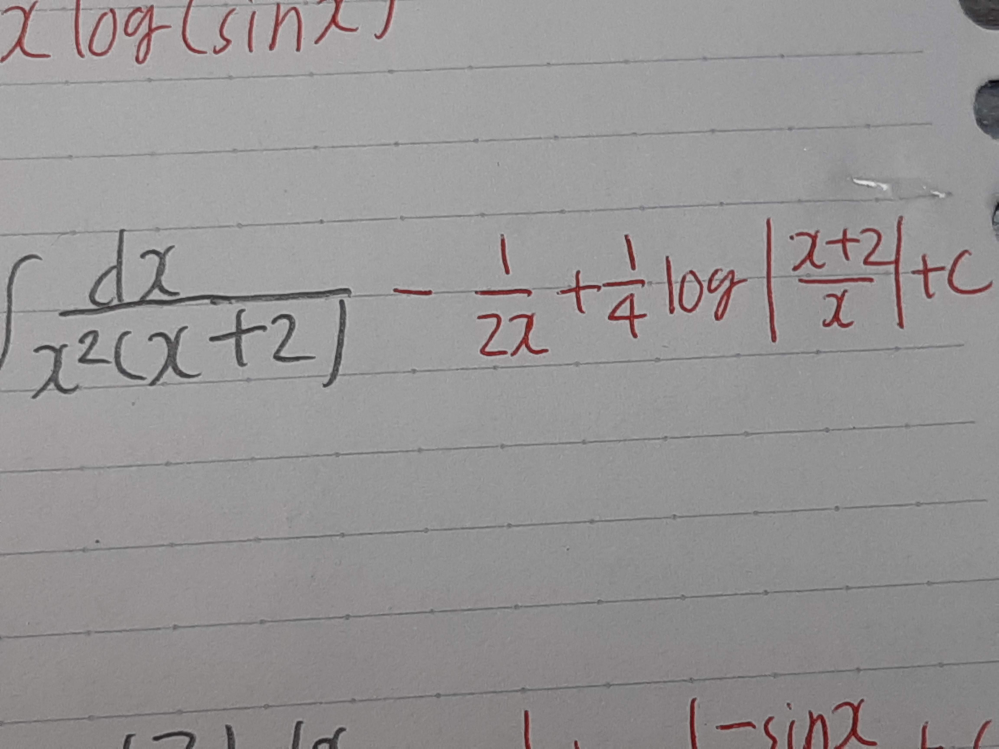 x log(sinx)
∫ dx/x²(x+2) - 1/2x + 1/4 log |x+2/x| + C
1-sinx